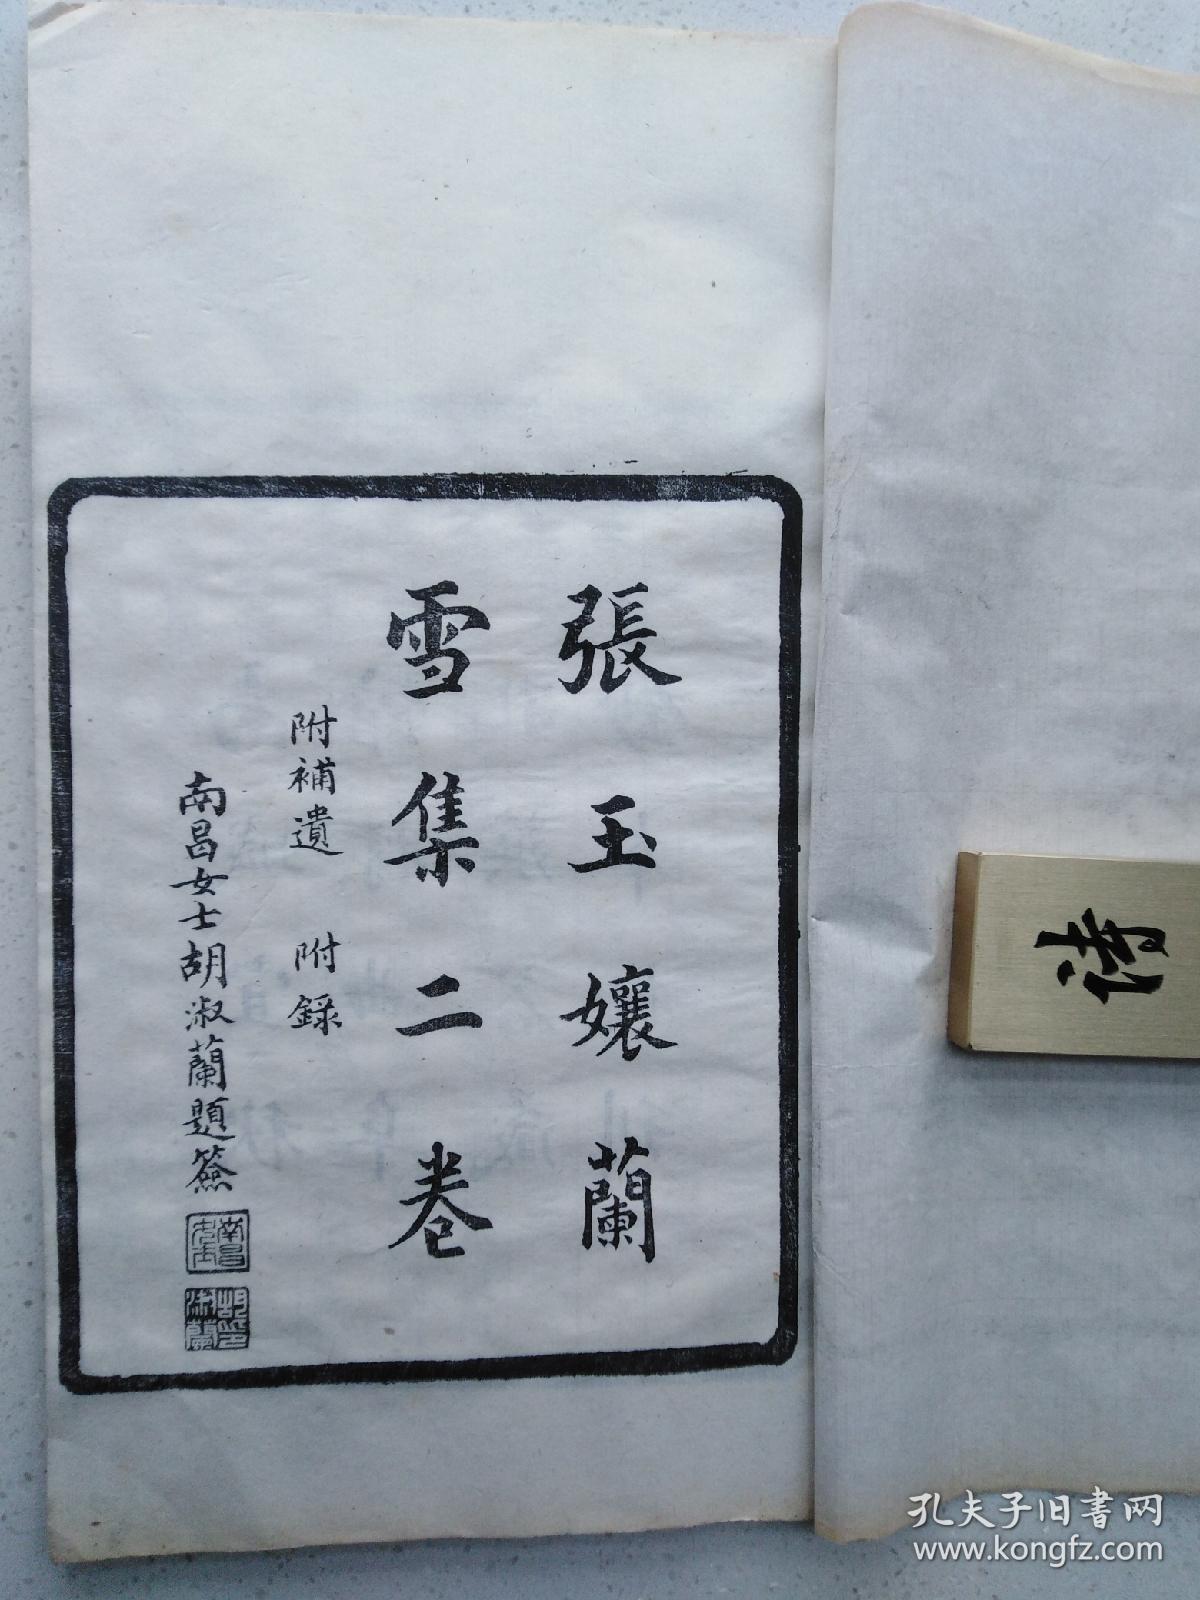 張玉孃蘭
雪集二卷
附補遺 附錄
南昌女士胡淑蘭題簽
南昌女士
胡淑蘭印
孔夫子旧书网
www.kongfz.com